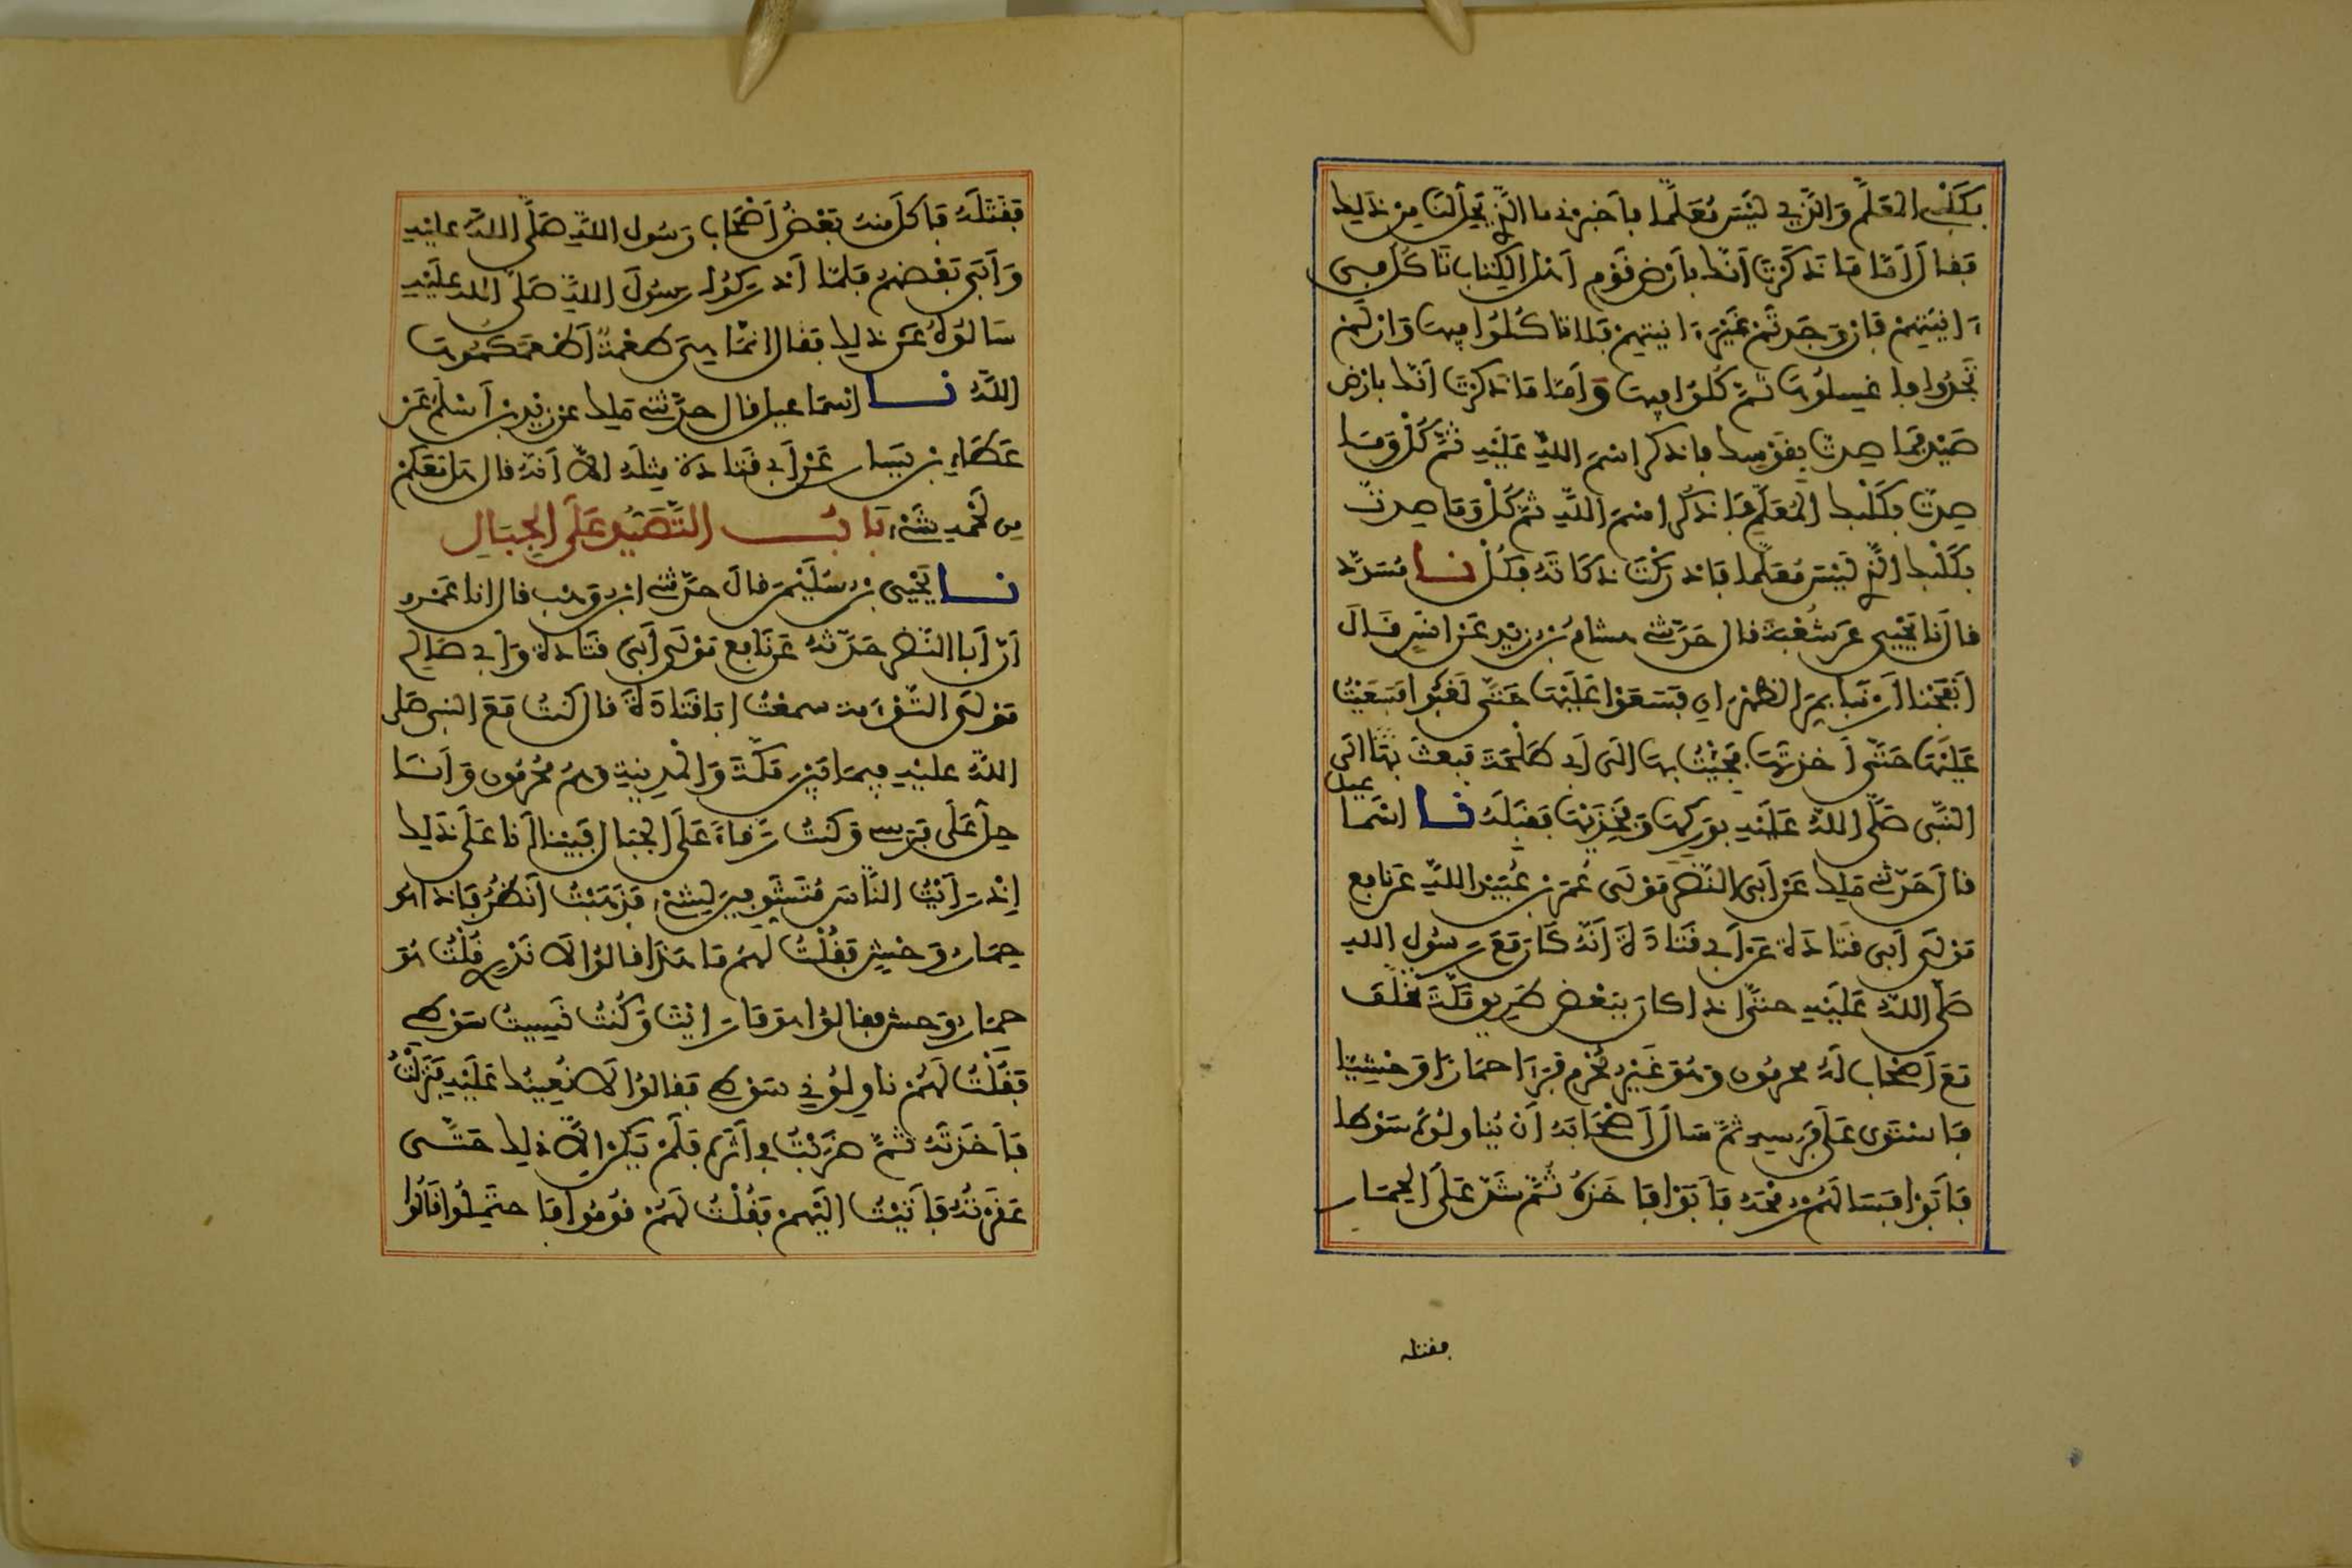 بكلبي المعلم والذي ليس معلما بأخبرني ما الذي يحل لنا من ذلك
فقال أما ما ذكرت أنك بأرض قوم أهل الكتاب تاكل في
ءانيتهم فإن وجدتم غير ءانيتهم فلا تاكلوا فيها وإن لم
تجدوا فاغسلوها ثم كلوا فيها وأما ما ذكرت أنك بأرض
صيد فما صدت بقوسك فاذكر اسم الله عليه ثم كل وما
صدت بكلبك المعلم فاذكر اسم الله ثم كل وما صدت
بكلبك الذي ليس معلما فأدركت ذكاته فكل نا مسدد
قال نا يحيى عن شعبة قال حدثني هشام بن زيد عن أنس قال
أنفجنا أرنبا بمر الظهران فسعوا عليها حتى لغبوا فسعيت
عليها حتى أخذتها فجئت بها إلى أبي طلحة فبعث بها إلى
النبي صلى الله عليه بوركها وفخذيها فقبله نا اسماعيل
قال حدثني ملك عن أبي النضر مولى عمر بن عبيد الله عن نافع
مولى أبي قتادة عن أبي قتادة أنه كان مع رسول الله
صلى الله عليه حتى إذا كان ببعض طريق مكة تخلف
مع أصحاب له محرمون وهو غير محرم فرءا حمارا وحشيا
فاستوى على فرسه ثم سأل أصحابه أن يناولوه سوطا
فأبوا فسألهم رمحه فأبوا فأخذه ثم شد على الحمار
فقتله
فقتله فأكل منه بعض أصحاب رسول الله صلى الله عليه
وأبى بعضهم فلما أدركوا رسول الله صلى الله عليه
سألوه عن ذلك فقال إنما هي طعمة أطعمكموها
الله نا إسماعيل قال حدثني ملك عن زيد بن أسلم عن
عطاء بن يسار عن أبي قتادة مثله إلا أنه قال هل معكم
من لحمه شيء باب التصيد على الجبال
نا يحيى بن سليمن قال حدثني ابن وهب قال انا عمرو
أن أبا النضر حدثه عن نافع مولى أبي قتادة وأبي صالح
مولى التوءمة سمعت أبا قتادة قال كنت مع النبي صلى
الله عليه فيما بين مكة والمدينة وهم محرمون وأنا
حل على فرس وكنت رقاء على الجبال فبينا أنا على ذلك
إذ رأيت الناس متشوفين لشيء فذهبت أنظر فإذا هو
حمار وحش فقلت لهم ما هذا قالوا لا ندري قلت هو
حمار وحش فقالوا هو ما رأيت وكنت نسيت سوطي
فقلت لهم ناولوني سوطي فقالوا لا نعينك عليه فنزلت
فأخذته ثم ضربت في أثره فلم يكن إلا ذلك حتى
عقرته فأتيت إليهم فقلت لهم قوموا فاحتملوا قالوا